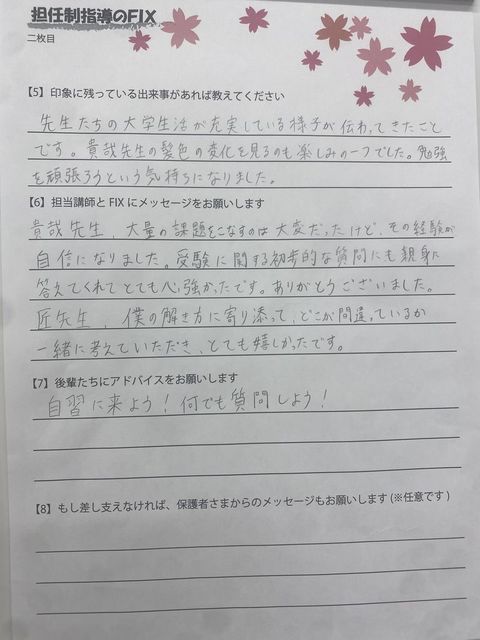 担任制指導のFIX
二枚目
【5】印象に残っている出来事があれば教えてください
先生たちの大学生活が充実している様子が伝わってきたこと
です。貴哉先生の髪色の変化を見るのも楽しみの一つでした。勉強
を頑張ろうという気持ちになりました。
【6】担当講師とFIXにメッセージをお願いします
貴哉先生、大量の課題をこなすのは大変だったけど、その経験が
自信になりました。受験に関する初歩的な質問にも親身に
答えてくれてとても心強かったです。ありがとうございました。
匠先生、僕の解き方に寄り添って、どこが間違っているか
一緒に考えていただき、とても嬉しかったです。
【7】後輩たちにアドバイスをお願いします
自習に来よう!何でも質問しよう!
【8】もし差し支えなければ、保護者さまからのメッセージもお願いします(※任意です)